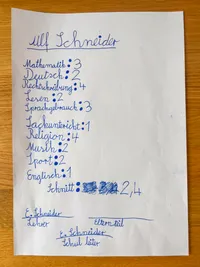 Ulf Schneider
Mathematik: 3
Deutsch: 2
Rechschreibung: 4
Lesen: 2
Sprachgebrauch: 3
Sackunterricht: 1
Religion: 4
Musik: 2
Sport: 2
Englisch: 1
Schnitt: 2,4
E. Schneider
Lehrer Elternteil
E. Schneider
Schul leiter